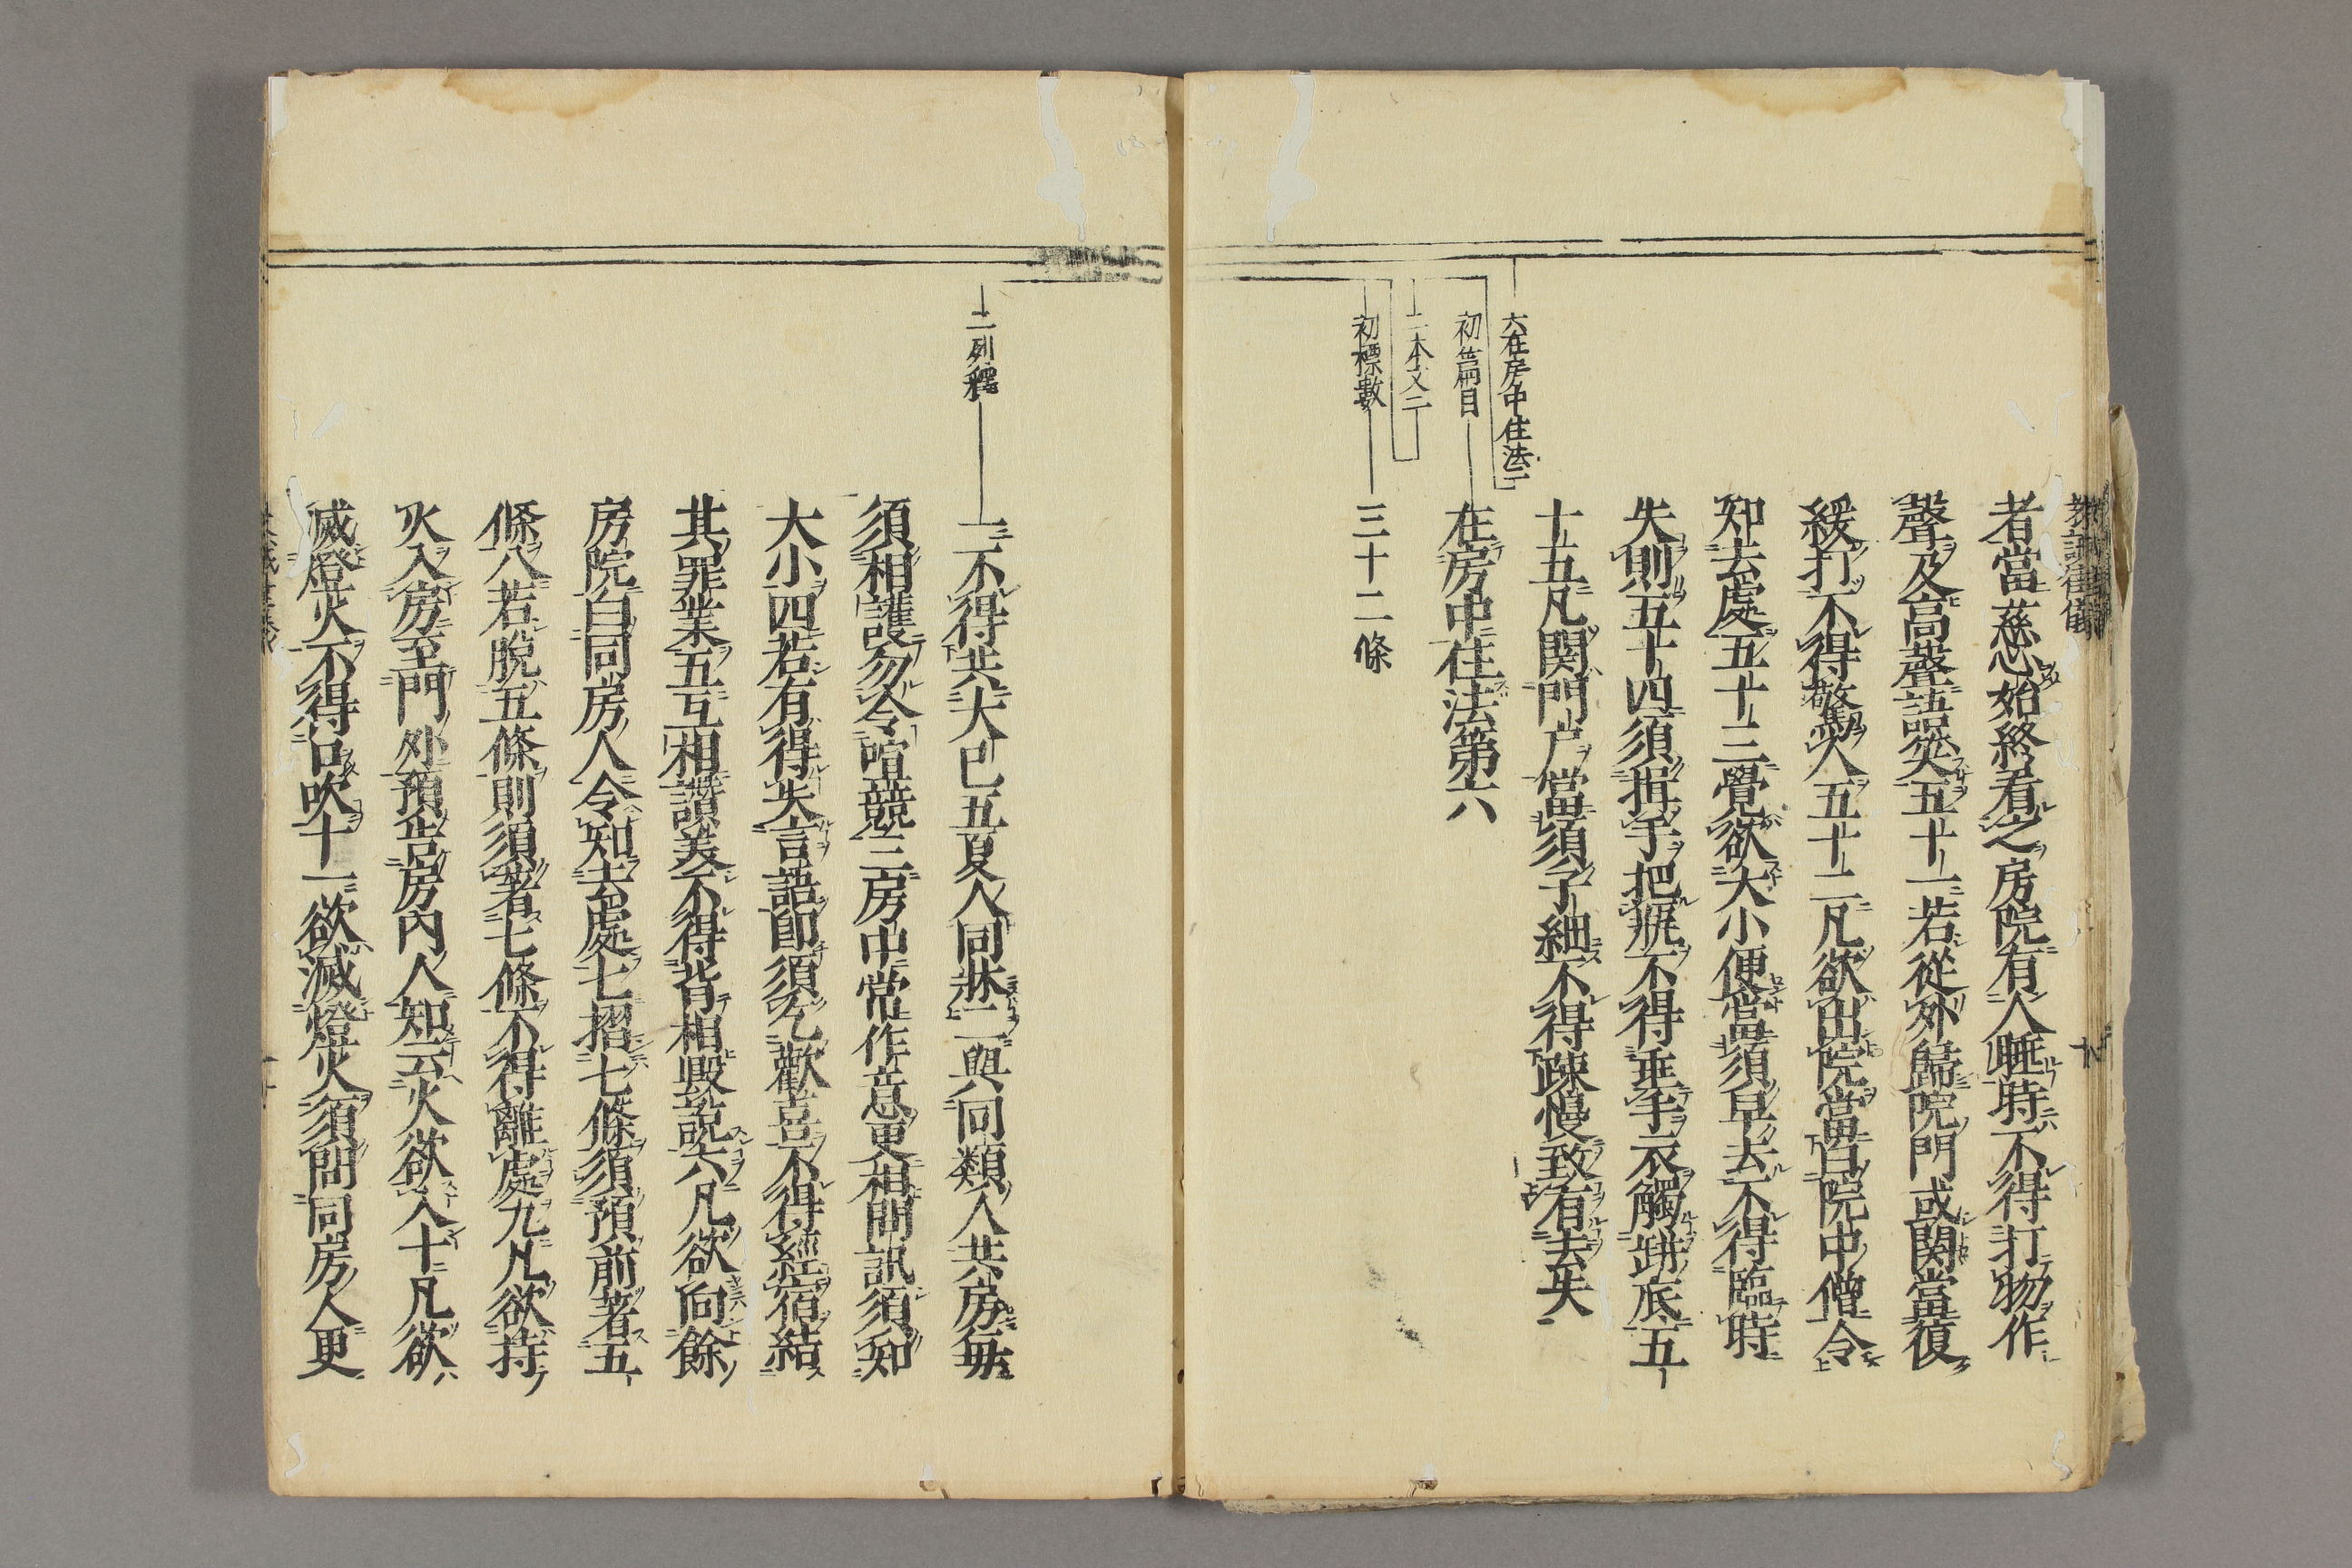 教誡律儀
者當慈心始終看之房院有人睡時不得打物作
聲及高聲語笑五十一若從外歸院門或関當復
緩打不得驚動人五十二凡欲出院當白院中僧令
知去處五十三覺欲大小便當須早去不得臨時
失則五十四須揖手把瓶不得垂手衣觸跰底五
十五凡関門户當須子細不得踈慢致有去失
六在房中住法二
初篇目
在房中住法第六
二本文二
初標數
三十二條
二列釋
一不得共大己五夏人同牀二與同類人共房每
須相護勿令喧競三房中常作意更相問訊須知
大小四若有得失言語即須乞歡喜不得經宿結
其罪業五互相讚美不得背相毀說六凡欲向餘
房院白同房人令知去處七摺七條須預前著五
條八若脫五條則須著七條不得離處九凡欲持
火入房至門外預告房內人知云火欲入十凡欲
滅燈火不得口吹十一欲滅燈火須問同房人更